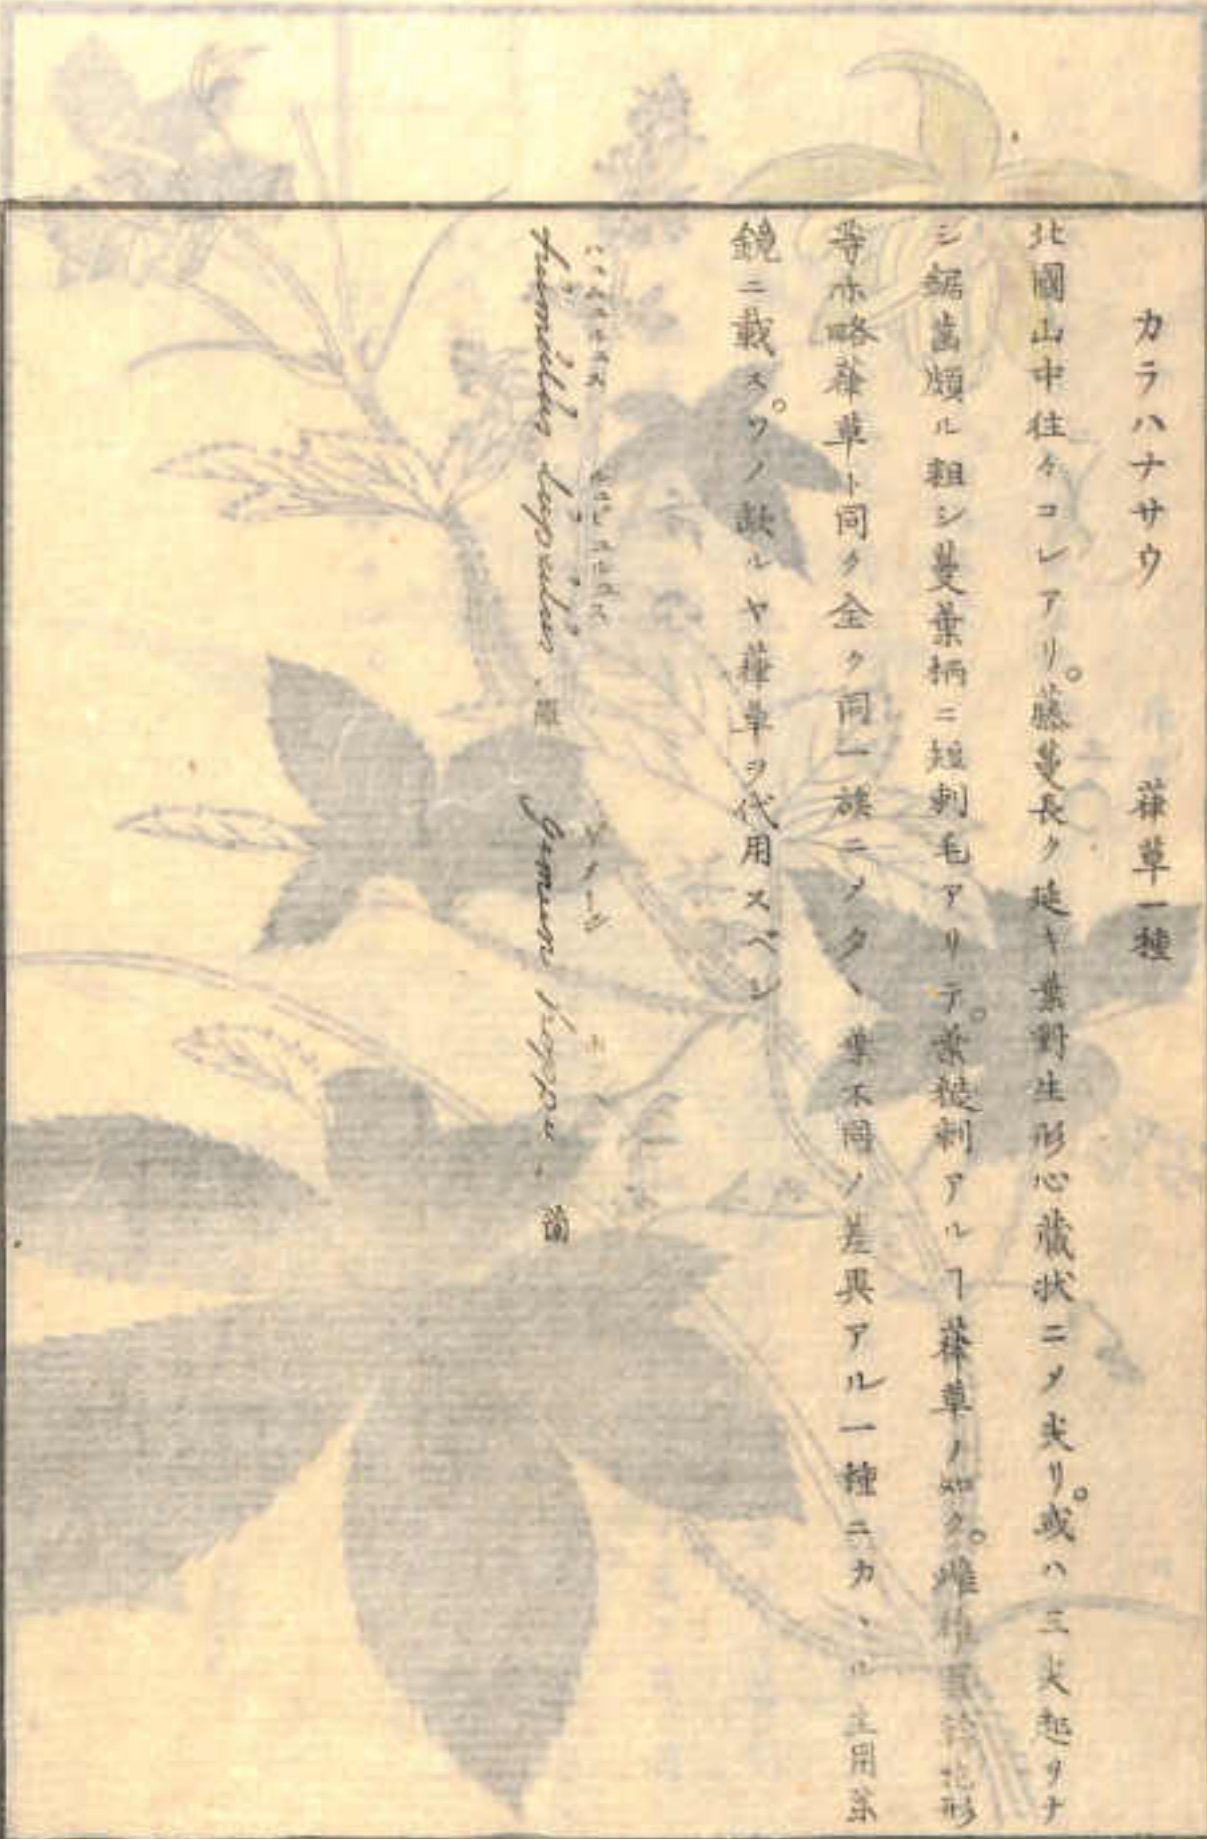 カラハナサウ 葎草一種
北國山中往々コレアリ。藤蔓長ク延キ葉對生形心蔵状ニメ尖リ。或ハ三尖起ヲナ
シ鋸歯頗ル粗シ蔓葉柄ニ短刺毛アリテ。葉糙刺アルヿ葎草ノ如ク。雌雄 花形
等亦略葎草ト同ク全ク同一族ニメタヽ葉不同ノ差異アル一種ニカヽル主用薬
鏡ニ載ス。ソノ 缺ルヤ葎草ヲ代用スベシ
ヒュミュルュス リュピュルュス
humúlús lúpúlús. 羅 ゲメーン ホッペ Gemeen hoppe. 蘭